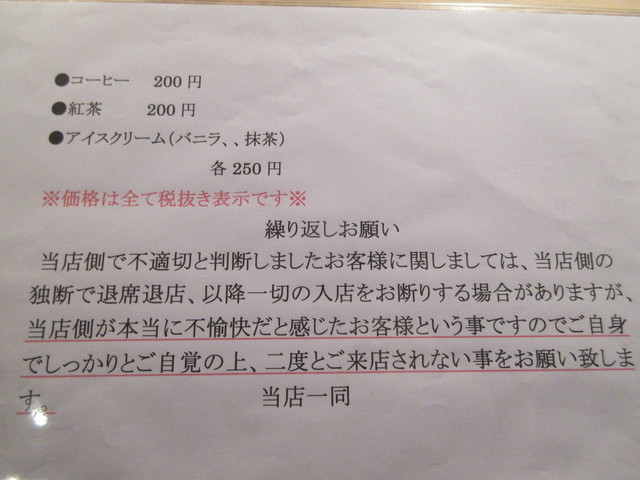 ●コーヒー 200 円
●紅茶 200 円
●アイスクリーム(バニラ、、抹茶)
各 250 円
※価格は全て税抜き表示です※
繰り返しお願い
当店側で不適切と判断しましたお客様に関しましては、当店側の
独断で退席退店、以降一切の入店をお断りする場合がありますが、
当店側が本当に不愉快だと感じたお客様という事ですのでご自身
でしっかりとご自覚の上、二度とご来店されない事をお願い致しま
す。 当店一同